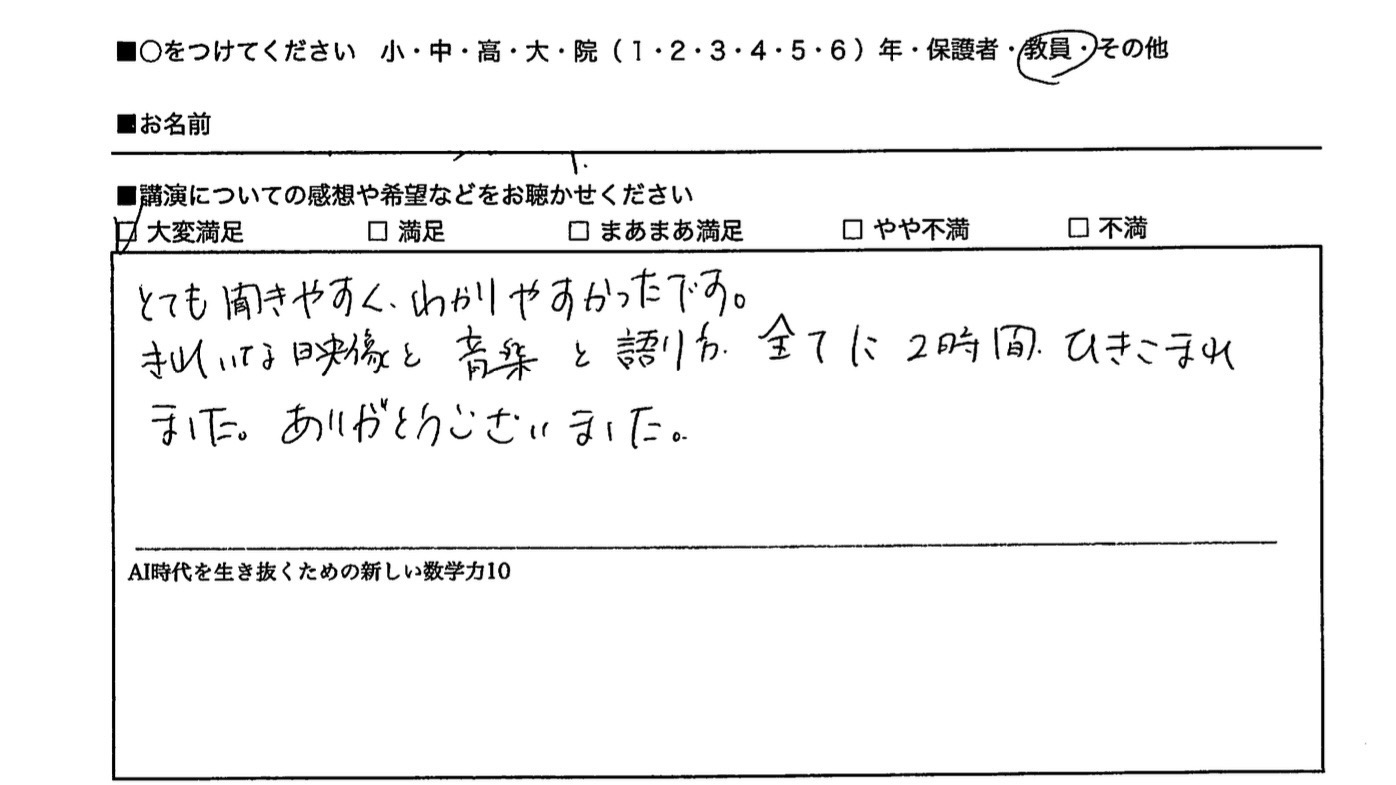 ■○をつけてください 小・中・高・大・院（1・2・3・4・5・6）年・保護者・教員・その他
■お名前
■講演についての感想や希望などをお聴かせください
□ 大変満足 □ 満足 □ まあまあ満足 □ やや不満 □ 不満
とても聞きやすく、わかりやすかったです。
きれいな映像と音楽と語り方、全てに2時間、ひきこまれ
ました。ありがとうございました。
AI時代を生き抜くための新しい数学力10